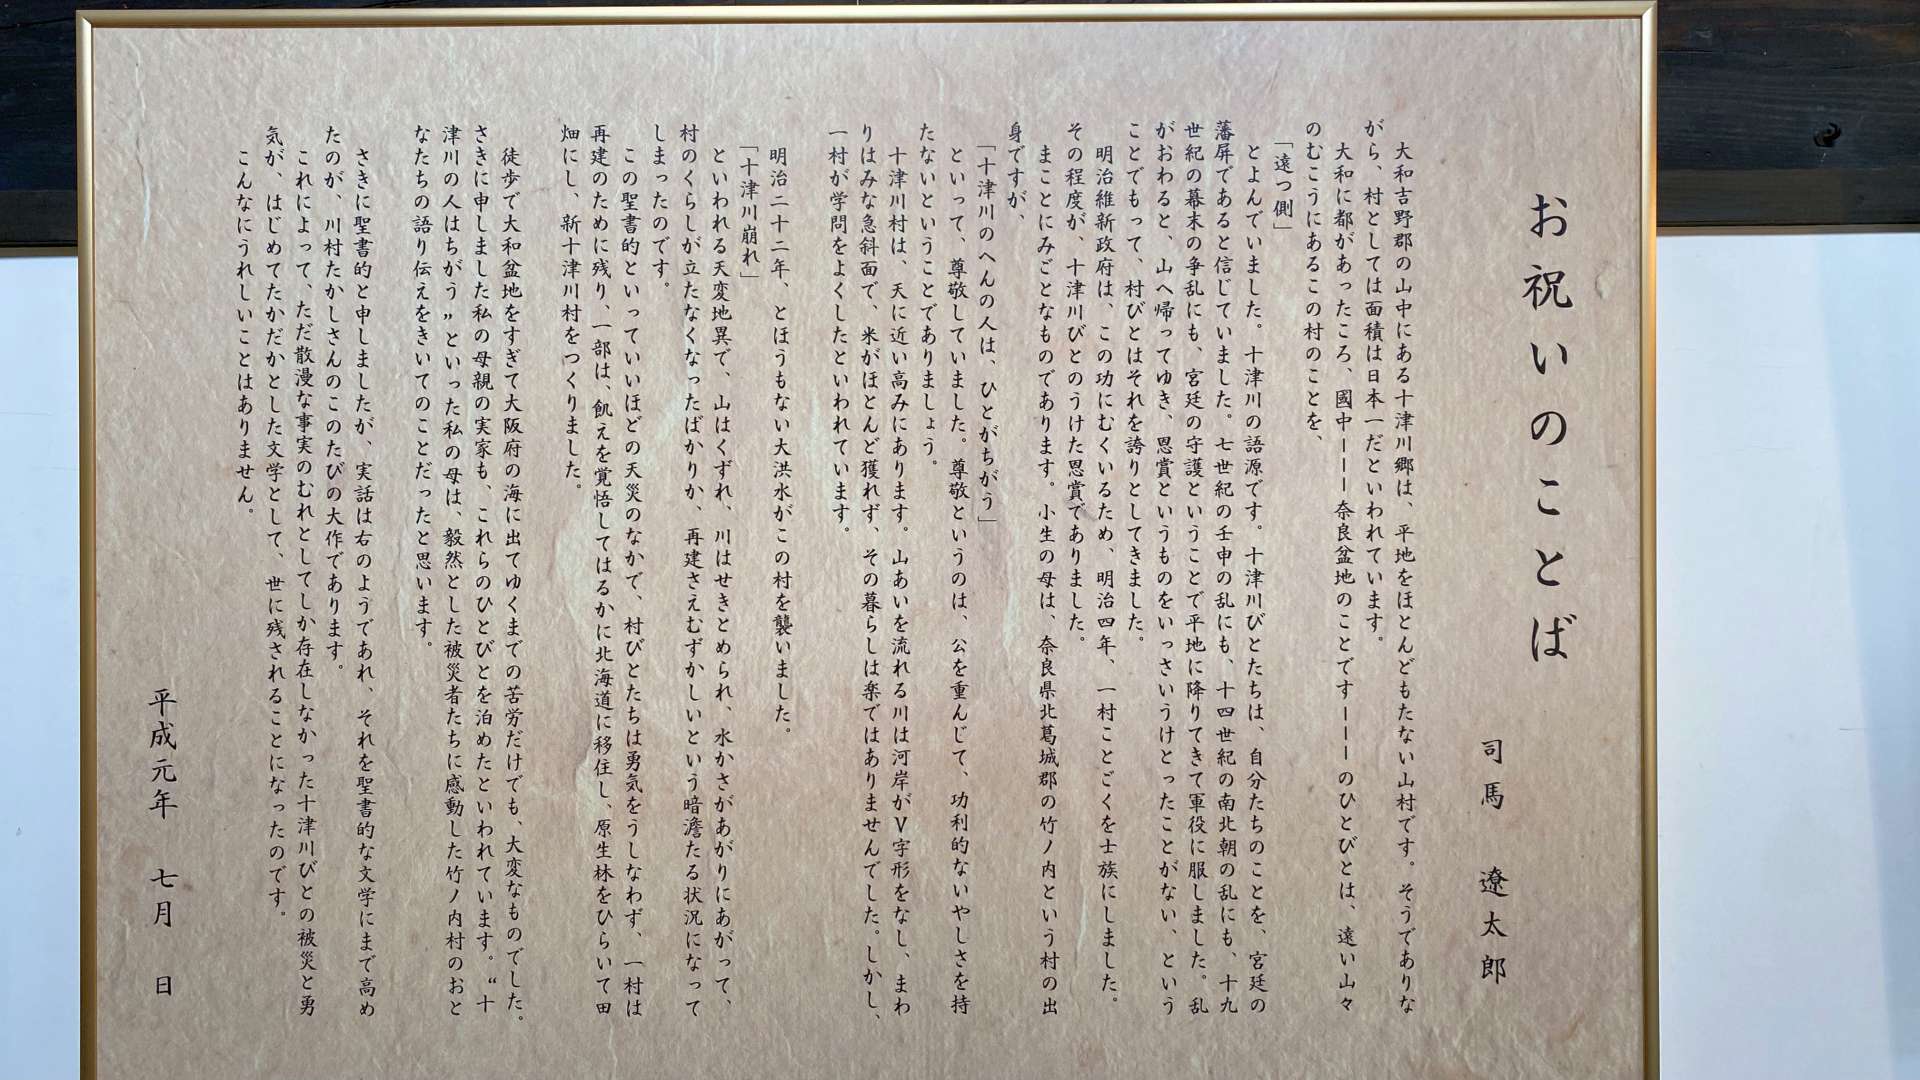 お祝いのことば
司馬　遼太郎
大和吉野郡の山中にある十津川郷は、平地をほとんどもたない山村です。そうでありな
がら、村としては面積は日本一だといわれています。
大和に都があったころ、國中ーーー奈良盆地のことですーーーのひとびとは、遠い山々
のむこうにあるこの村のことを、
「遠つ側」
とよんでいました。十津川の語源です。十津川びとたちは、自分たちのことを、宮廷の
藩屏であると信じていました。七世紀の壬申の乱にも、十四世紀の南北朝の乱にも、十九
世紀の幕末の争乱にも、宮廷の守護ということで平地に降りてきて軍役に服しました。乱
がおわると、山へ帰ってゆき、恩賞というものをいっさいうけとったことがない、という
ことでもって、村びとはそれを誇りとしてきました。
明治維新政府は、この功にむくいるため、明治四年、一村ことごくを士族にしました。
その程度が、十津川びとのうけた恩賞でありました。
まことにみごとなものであります。小生の母は、奈良県北葛城郡の竹ノ内という村の出
身ですが、
「十津川のへんの人は、ひとがちがう」
といって、尊敬していました。尊敬というのは、公を重んじて、功利的ないやしさを持
たないということでありましょう。
十津川村は、天に近い高みにあります。山あいを流れる川は河岸がV字形をなし、まわ
りはみな急斜面で、米がほとんど獲れず、その暮らしは楽ではありませんでした。しかし、
一村が学問をよくしたといわれています。
明治二十二年、とほうもない大洪水がこの村を襲いました。
「十津川崩れ」
といわれる天変地異で、山はくずれ、川はせきとめられ、水かさがあがりにあがって、
村のくらしが立たなくなったばかりか、再建さえむずかしいという暗澹たる状況になって
しまったのです。
この聖書的といっていいほどの天災のなかで、村びとたちは勇気をうしなわず、一村は
再建のために残り、一部は、飢えを覚悟してはるかに北海道に移住し、原生林をひらいて田
畑にし、新十津川村をつくりました。
徒歩で大和盆地をすぎて大阪府の海に出てゆくまでの苦労だけでも、大変なものでした。
さきに申しました私の母親の実家も、これらのひとびとを泊めたといわれています。“十
津川の人はちがう”といった私の母は、毅然とした被災者たちに感動した竹ノ内村のおと
なたちの語り伝えをきいてのことだったと思います。
さきに聖書的と申しましたが、実話は右のようであれ、それを聖書的な文学にまで高め
たのが、川村たかしさんのこのたびの大作であります。
これによって、ただ散漫な事実のむれとしてしか存在しなかった十津川びとの被災と勇
気が、はじめてたかだかとした文学として、世に残されることになったのです。
こんなにうれしいことはありません。
平成元年　七月　日